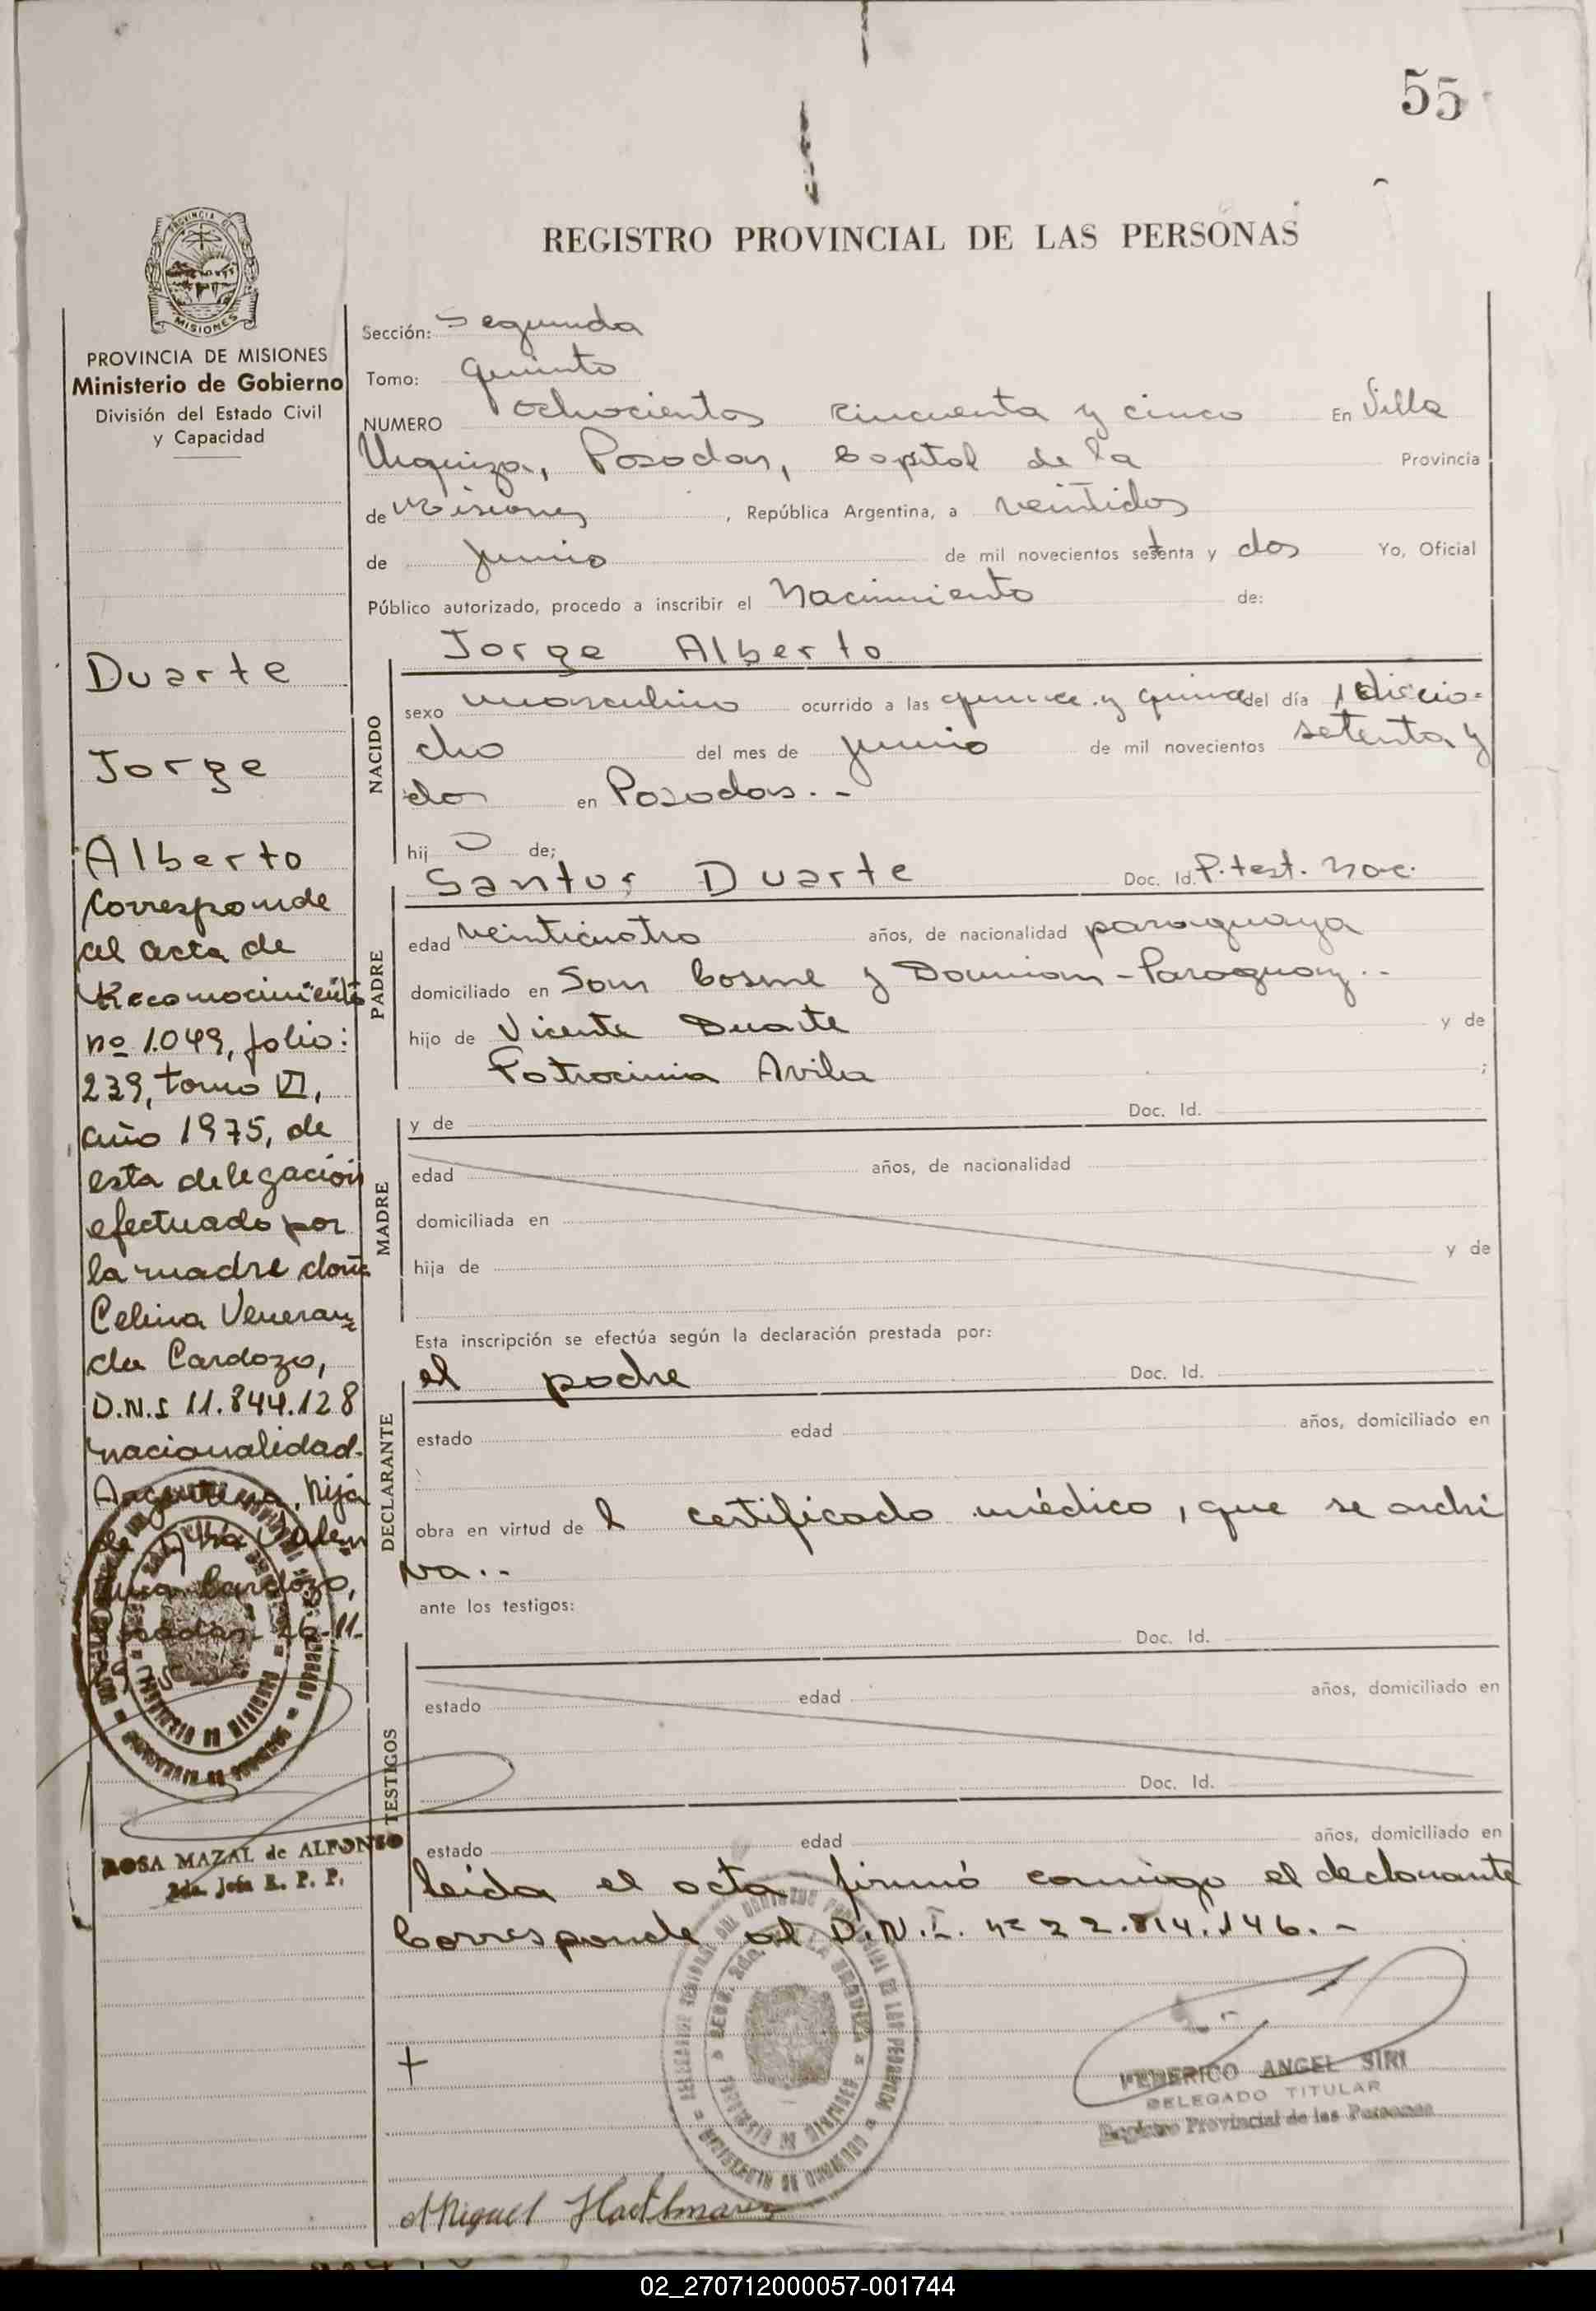 55
REGISTRO PROVINCIAL DE LAS PERSONAS
PROVINCIA DE
MISIONES
PROVINCIA DE MISIONES
Ministerio de Gobierno
División del Estado Civil
y Capacidad
Duarte
Jorge
Alberto
Corresponde
al acta de
Reconocimiento
nº 1.049, folio:
239, tomo VI,
año 1975, de
esta delegación
efectuado por
la madre doña
Celina Veneran
da Cardozo,
D.N.I 11.844.128
nacionalidad
Argentina, hija
de
Cardozo,
Posadas 26-11-
1975
ROSA MAZAL de ALFONSO
2da. Jefa R. P. P.
Sección: Segunda
Tomo: Quinto
NUMERO ochocientos cincuenta y cinco En Villa
Urquiza, Posadas, Capital de la Provincia
de Misiones, República Argentina, a veintidos
de junio de mil novecientos setenta y dos Yo, Oficial
Público autorizado, procedo a inscribir el Nacimiento de:
Jorge Alberto
NACIDO
sexo masculino ocurrido a las quince y quince del día diecio=
cho del mes de junio de mil novecientos setenta y
dos en Posadas.-
hij o de;
PADRE
Santos Duarte Doc. Id. P. test. nac.
edad veinticuatro años, de nacionalidad paraguaya
domiciliado en San Cosme y Damian - Paraguay.-
hijo de Vicente Duarte y de
Patrocinia Avila ;
MADRE
y de Doc. Id.
edad años, de nacionalidad
domiciliada en
hija de y de
Esta inscripción se efectúa según la declaración prestada por:
DECLARANTE
el padre Doc. Id.
estado edad años, domiciliado en
obra en virtud de l certificado médico, que se archi
va.-
ante los testigos:
TESTIGOS
Doc. Id.
estado edad años, domiciliado en
Doc. Id.
estado edad años, domiciliado en
Leida el acta firmó conmigo el declarante
Corresponde al D.N.I. nº 22.814.146.-
FEDERICO ANGEL SIRI
DELEGADO TITULAR
Registro Provincial de las Personas
Miguel
02_270712000057-001744